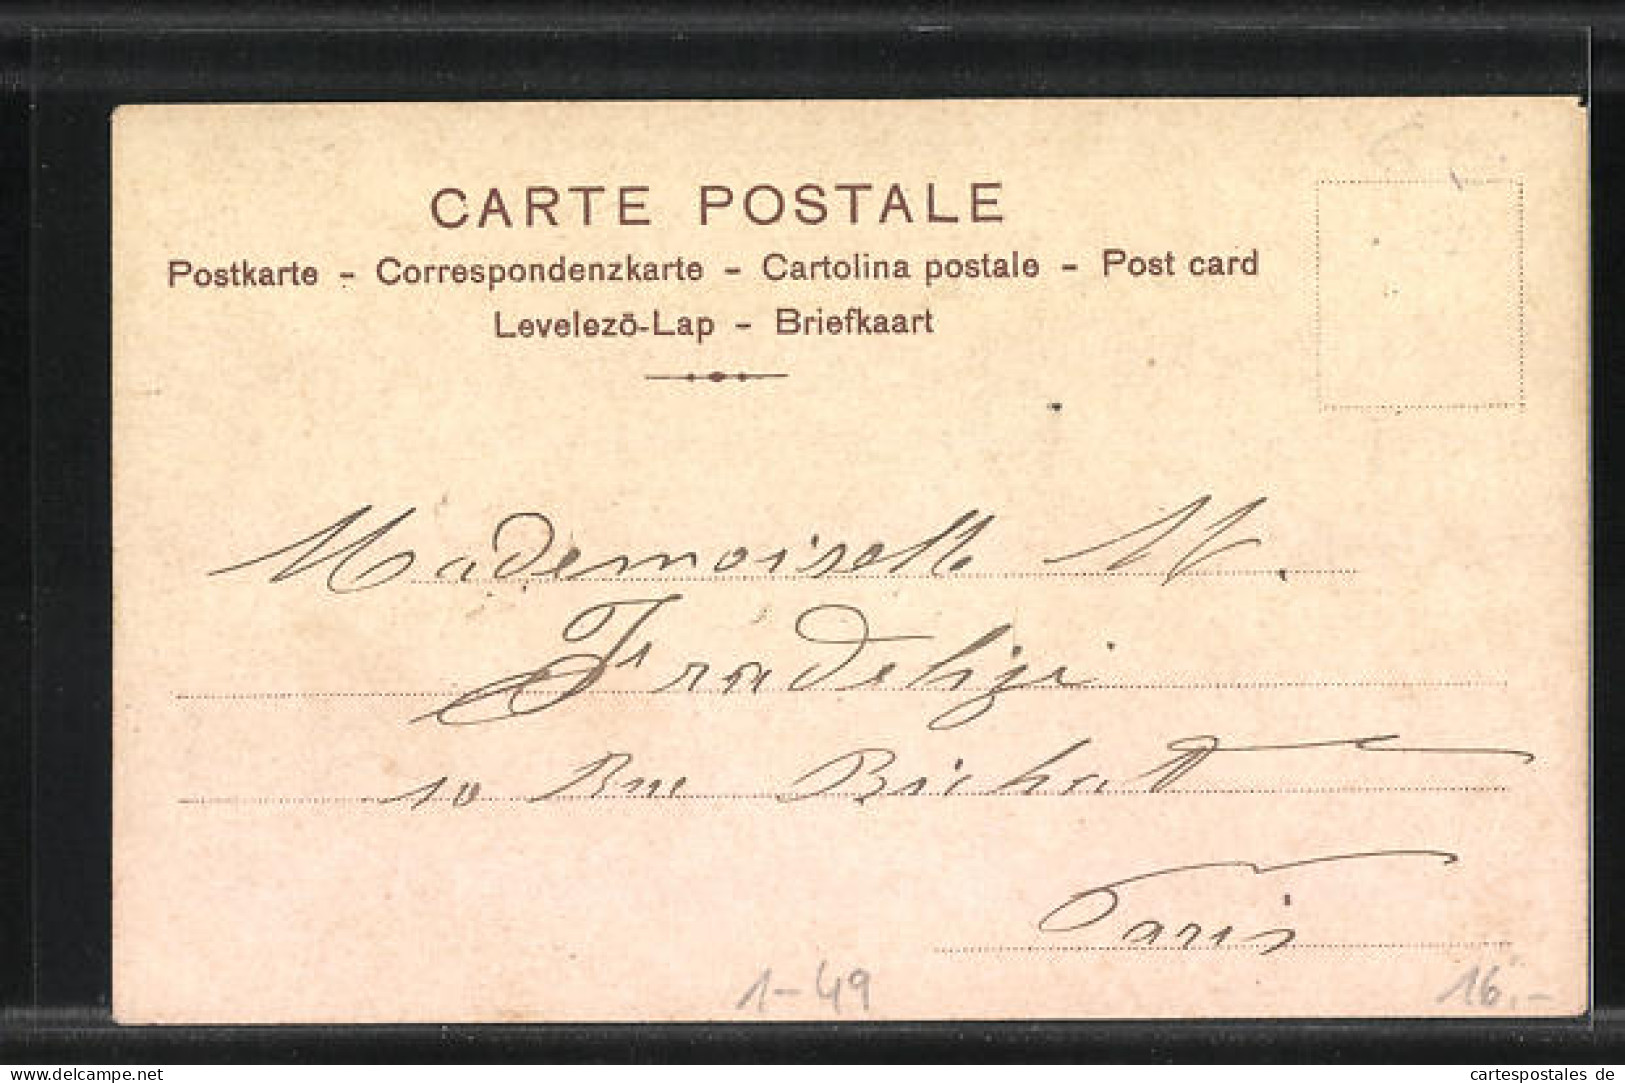 CARTE POSTALE
Postkarte – Correspondenzkarte – Cartolina postale – Post card
Levelezõ-Lap – Briefkaart
Mademoiselle M.
Fradelizi
10 Rue Bichat
Paris
1-49
16.-
delcampe.net
cartespostales de